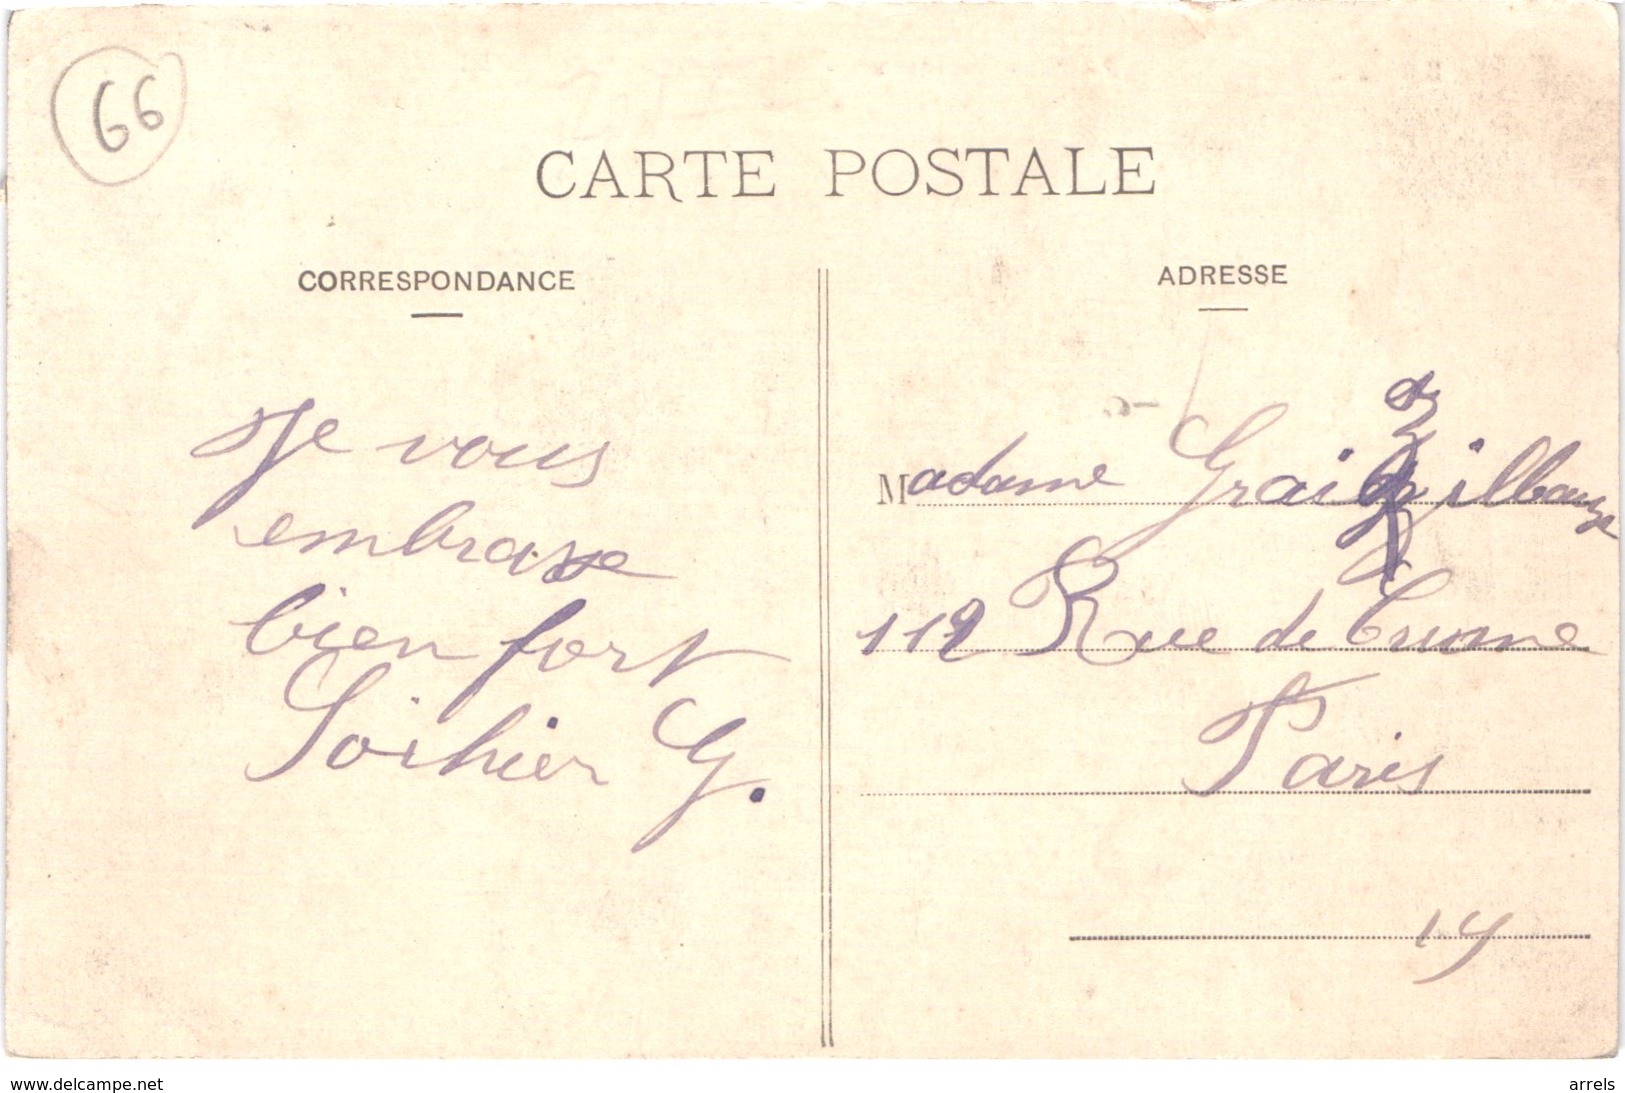 66
CARTE POSTALE
CORRESPONDANCE
ADRESSE
Je vous
embrasse
bien fort
G.
Madame
112 Rue de
Paris
14
www.delcampe.net
arrels